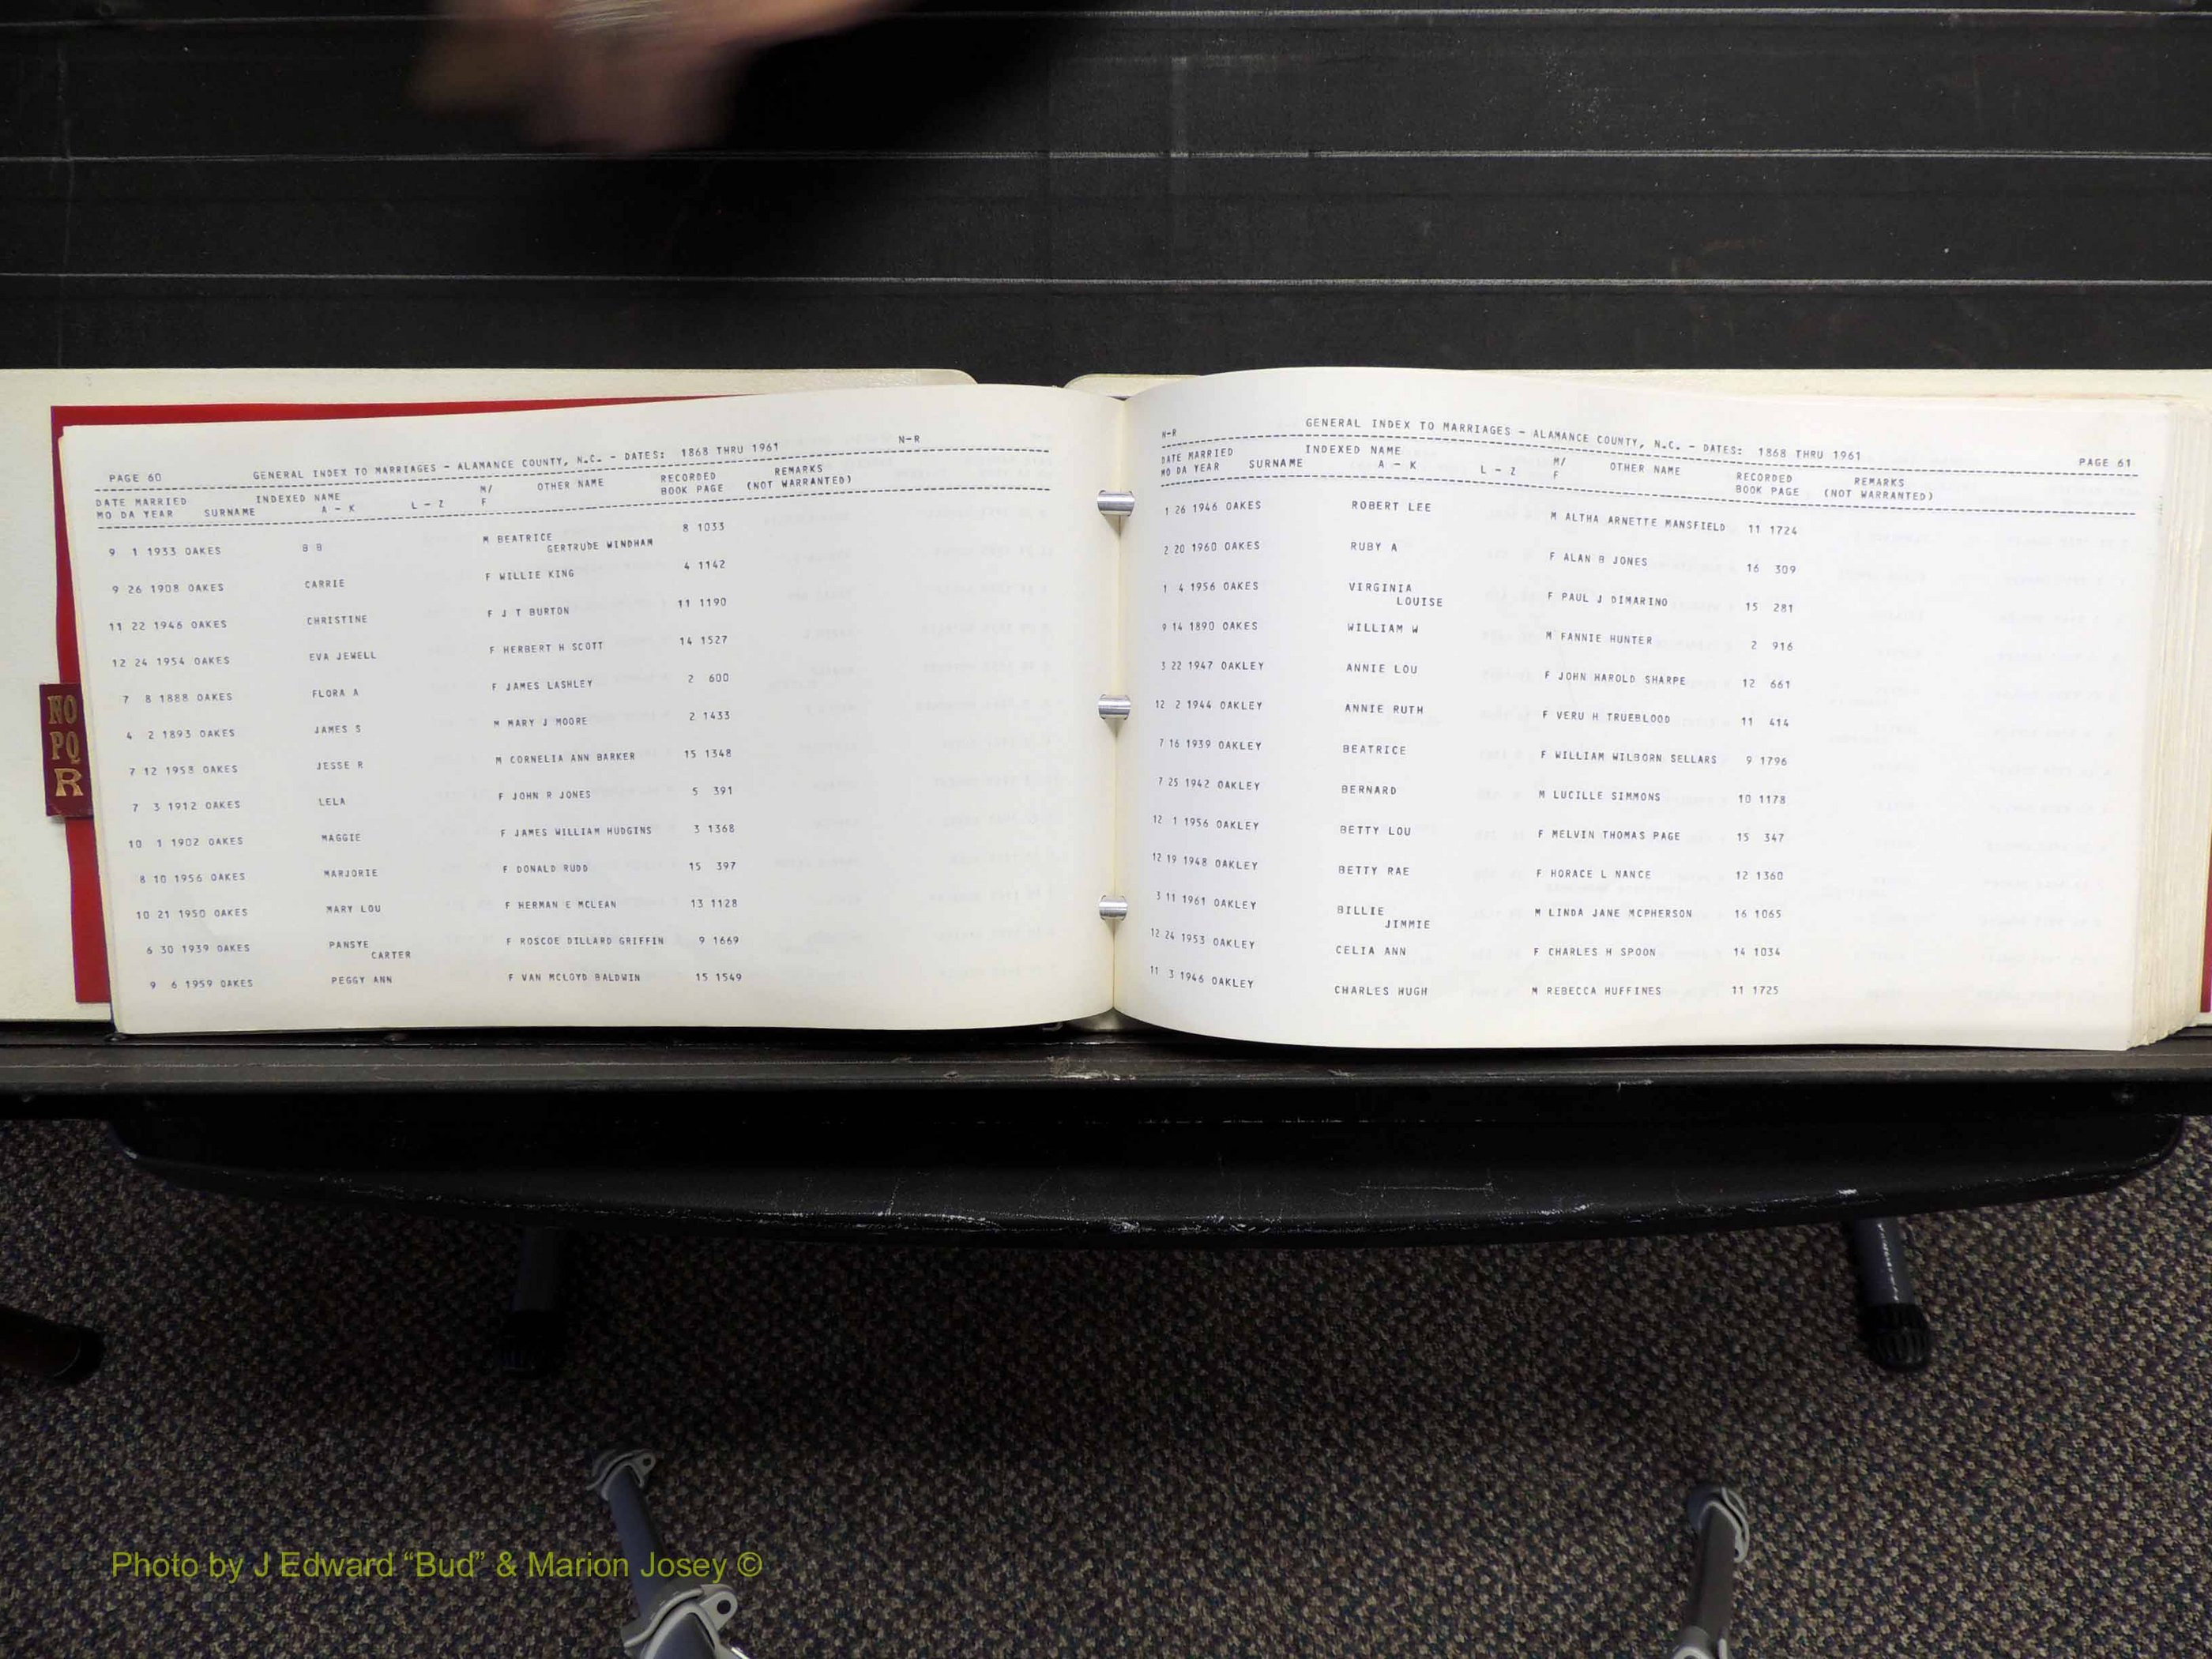 NO
PQ
R
PAGE 60 GENERAL INDEX TO MARRIAGES - ALAMANCE COUNTY, N.C. - DATES: 1868 THRU 1961 N-R
DATE MARRIED INDEXED NAME M/ OTHER NAME RECORDED REMARKS
MO DA YEAR SURNAME A - K L - Z F BOOK PAGE (NOT WARRANTED)
9 1 1933 OAKES B B M BEATRICE 8 1033
GERTRUDE WINDHAM
9 26 1908 OAKES CARRIE F WILLIE KING 4 1142
11 22 1946 OAKES CHRISTINE F J T BURTON 11 1190
12 24 1954 OAKES EVA JEWELL F HERBERT H SCOTT 14 1527
7 8 1888 OAKES FLORA A F JAMES LASHLEY 2 600
4 2 1893 OAKES JAMES S M MARY J MOORE 2 1433
7 12 1958 OAKES JESSE R M CORNELIA ANN BARKER 15 1348
7 3 1912 OAKES LELA F JOHN R JONES 5 391
10 1 1902 OAKES MAGGIE F JAMES WILLIAM HUDGINS 3 1368
8 10 1956 OAKES MARJORIE F DONALD RUDD 15 397
10 21 1950 OAKES MARY LOU F HERMAN E MCLEAN 13 1128
6 30 1939 OAKES PANSYE F ROSCOE DILLARD GRIFFIN 9 1669
CARTER
9 6 1959 OAKES PEGGY ANN F VAN MCLOYD BALDWIN 15 1549
N-R GENERAL INDEX TO MARRIAGES - ALAMANCE COUNTY, N.C. - DATES: 1868 THRU 1961 PAGE 61
DATE MARRIED INDEXED NAME M/ OTHER NAME RECORDED REMARKS
MO DA YEAR SURNAME A - K L - Z F BOOK PAGE (NOT WARRANTED)
1 26 1946 OAKES ROBERT LEE M ALTHA ARNETTE MANSFIELD 11 1724
2 20 1960 OAKES RUBY A F ALAN B JONES 16 309
1 4 1956 OAKES VIRGINIA F PAUL J DIMARINO 15 281
LOUISE
9 14 1890 OAKES WILLIAM W M FANNIE HUNTER 2 916
3 22 1947 OAKLEY ANNIE LOU F JOHN HAROLD SHARPE 12 661
12 2 1944 OAKLEY ANNIE RUTH F VERU H TRUEBLOOD 11 414
7 16 1939 OAKLEY BEATRICE F WILLIAM WILBORN SELLARS 9 1796
7 25 1942 OAKLEY BERNARD M LUCILLE SIMMONS 10 1178
12 1 1956 OAKLEY BETTY LOU F MELVIN THOMAS PAGE 15 347
12 19 1948 OAKLEY BETTY RAE F HORACE L NANCE 12 1360
3 11 1961 OAKLEY BILLIE M LINDA JANE MCPHERSON 16 1065
JIMMIE
12 24 1953 OAKLEY CELIA ANN F CHARLES H SPOON 14 1034
11 3 1946 OAKLEY CHARLES HUGH M REBECCA HUFFINES 11 1725
Photo by J Edward “Bud” & Marion Josey ©